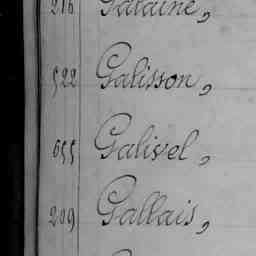 216 Galaine,
522 Galisson,
655 Galivel,
209 Gallais,